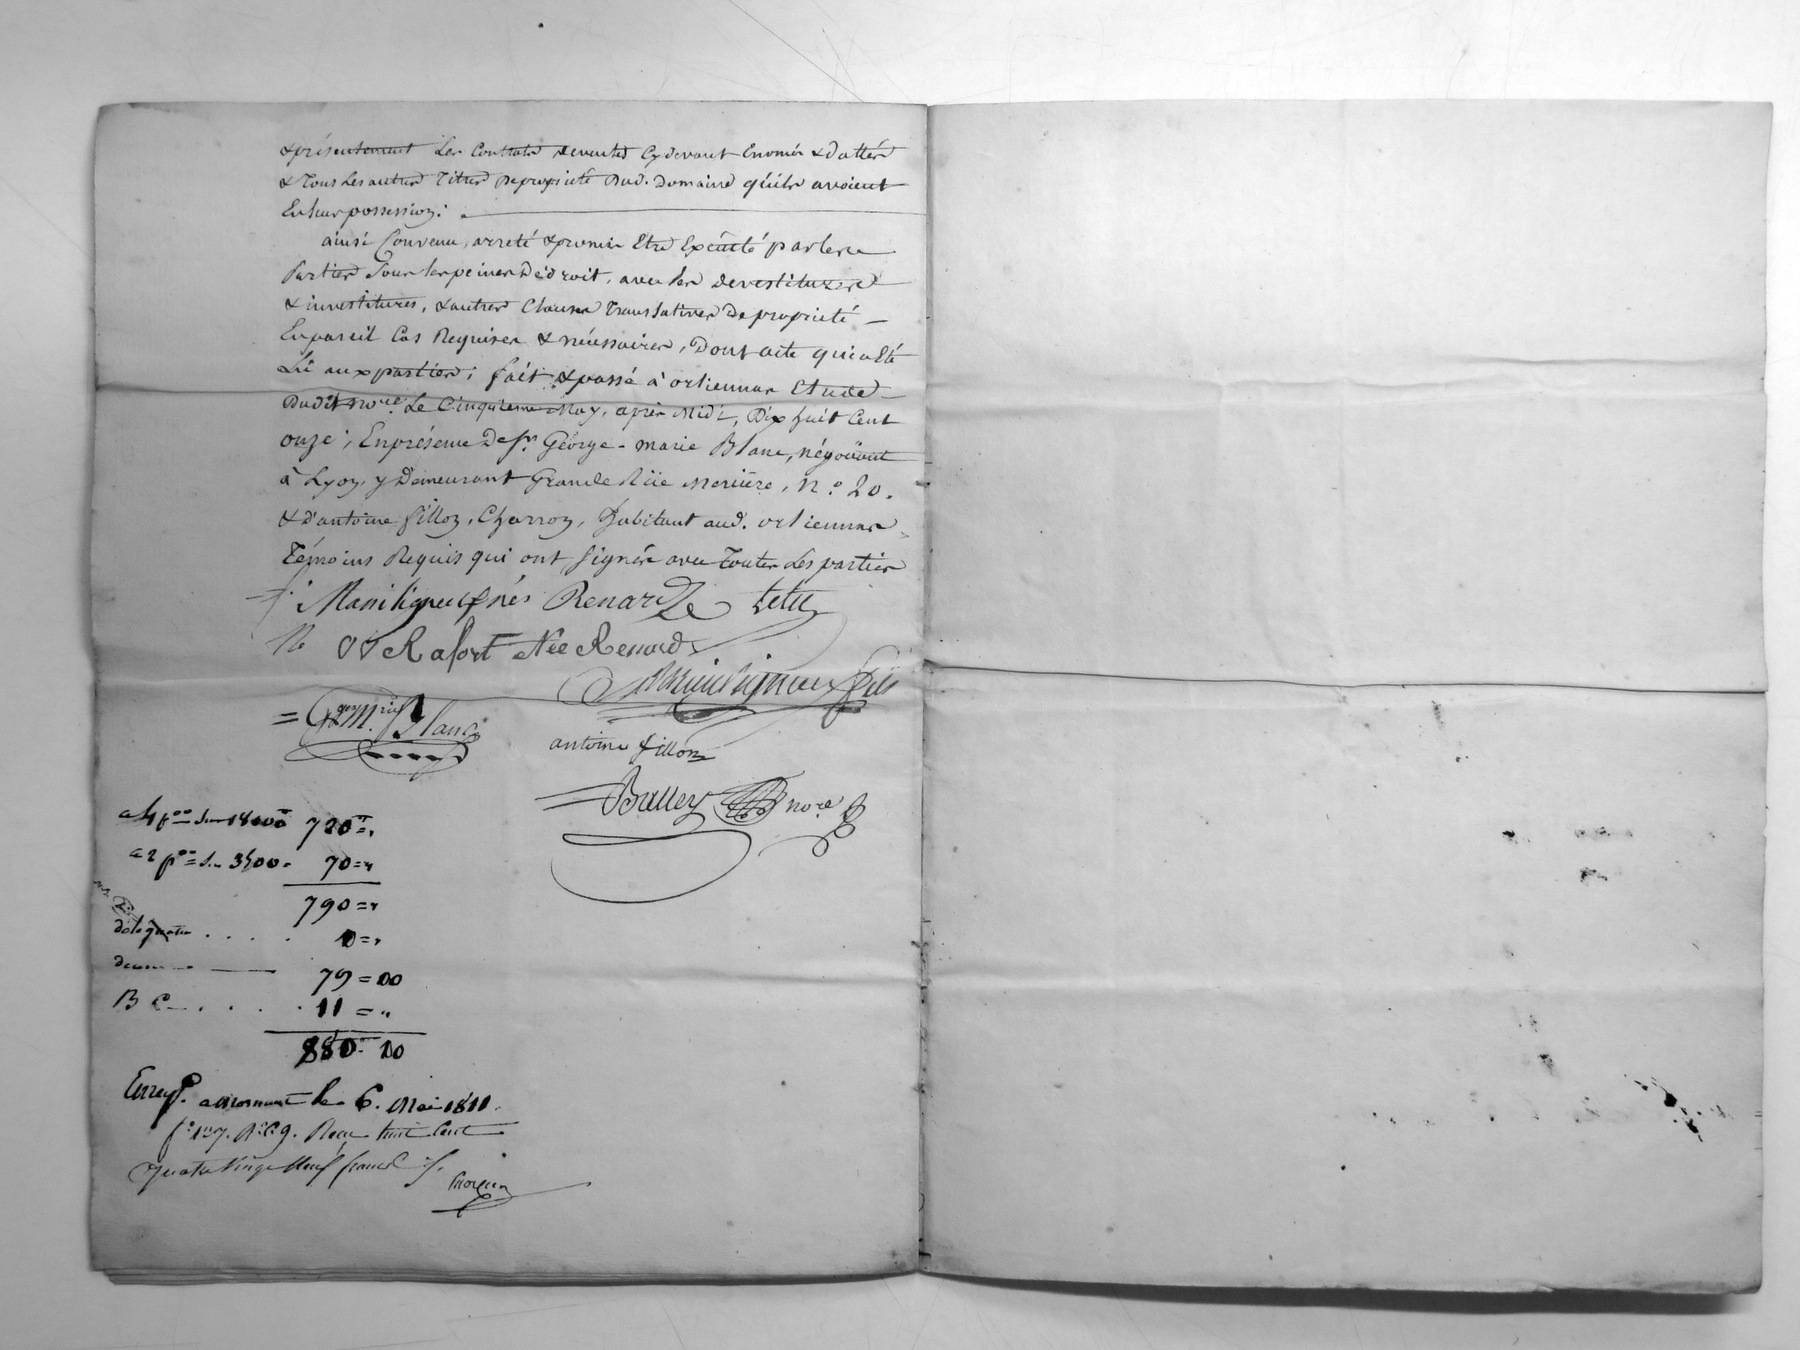 & présentement les Contrats devantes Cydevant Enoncés & dattés
& Tous les autres Titres De propriété Dud. Domaine qu'ils avoient
En leur possession.
ainsi Convenu, arreté & promis Etre Exécuté par les
Parties Sous les peines De droit, avec les devestitures
& investitures, & autres Clauses Translatives De propriété
En pareil Cas Requises & nécessaires, Dont acte qui a Eté
Lû aux parties; fait & passé à orliennas Etude
Dudit no.re Le Cinquieme May, après Midi, Dix huit Cent
onze; En présence De Sr. George-marie Blanc, négotiant
à Lyon, y Demeurant Grande Rüe Merciere, N.o 20.
& d'antoine fillon, Charron, habitant aud. orliennas
Témoins Requis qui ont signés avec Toutes Les parties
Renard
Rafort Née Renard
fils
Blanc
antoine fillon
no.re
a 4 p.00 sur 18000 720 =
a 2 p.00 = sur 3500 70 =
790 =
délégation . . . . 1 =
79 = 00
B C . . . . 11 =
880 = 10
Enreg. a Mornant le 6. Mai 1811.
f.o 127. R.o C 9. Recu huit Cent
quatre Vingt Neuf francs